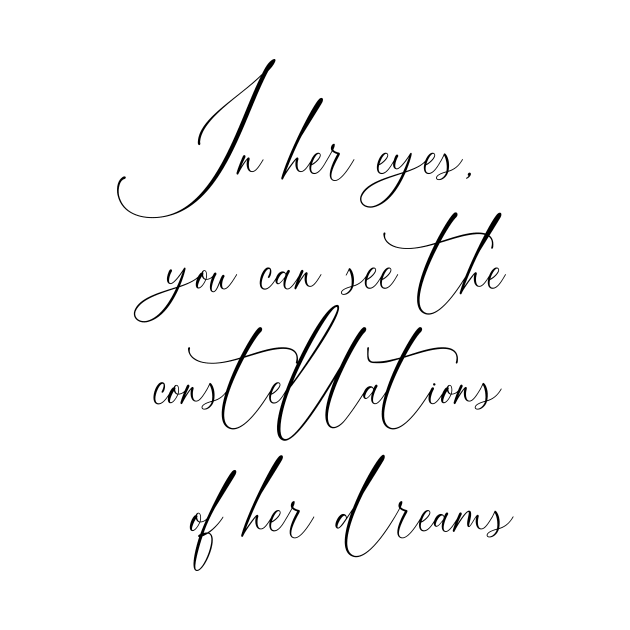 In her eyes,
you can see the
constellations
of her dreams